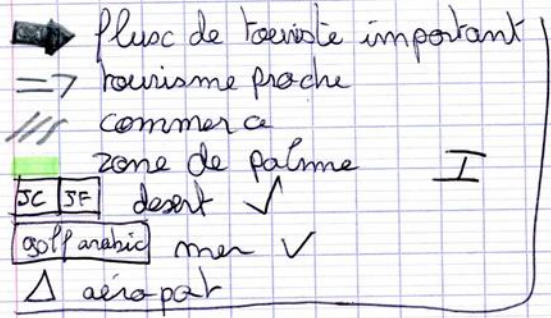 flusc de touriste important
tourisme proche
commerce
zone de palme
I
JC JF desert ✓
golf arabic mer ✓
aéroport